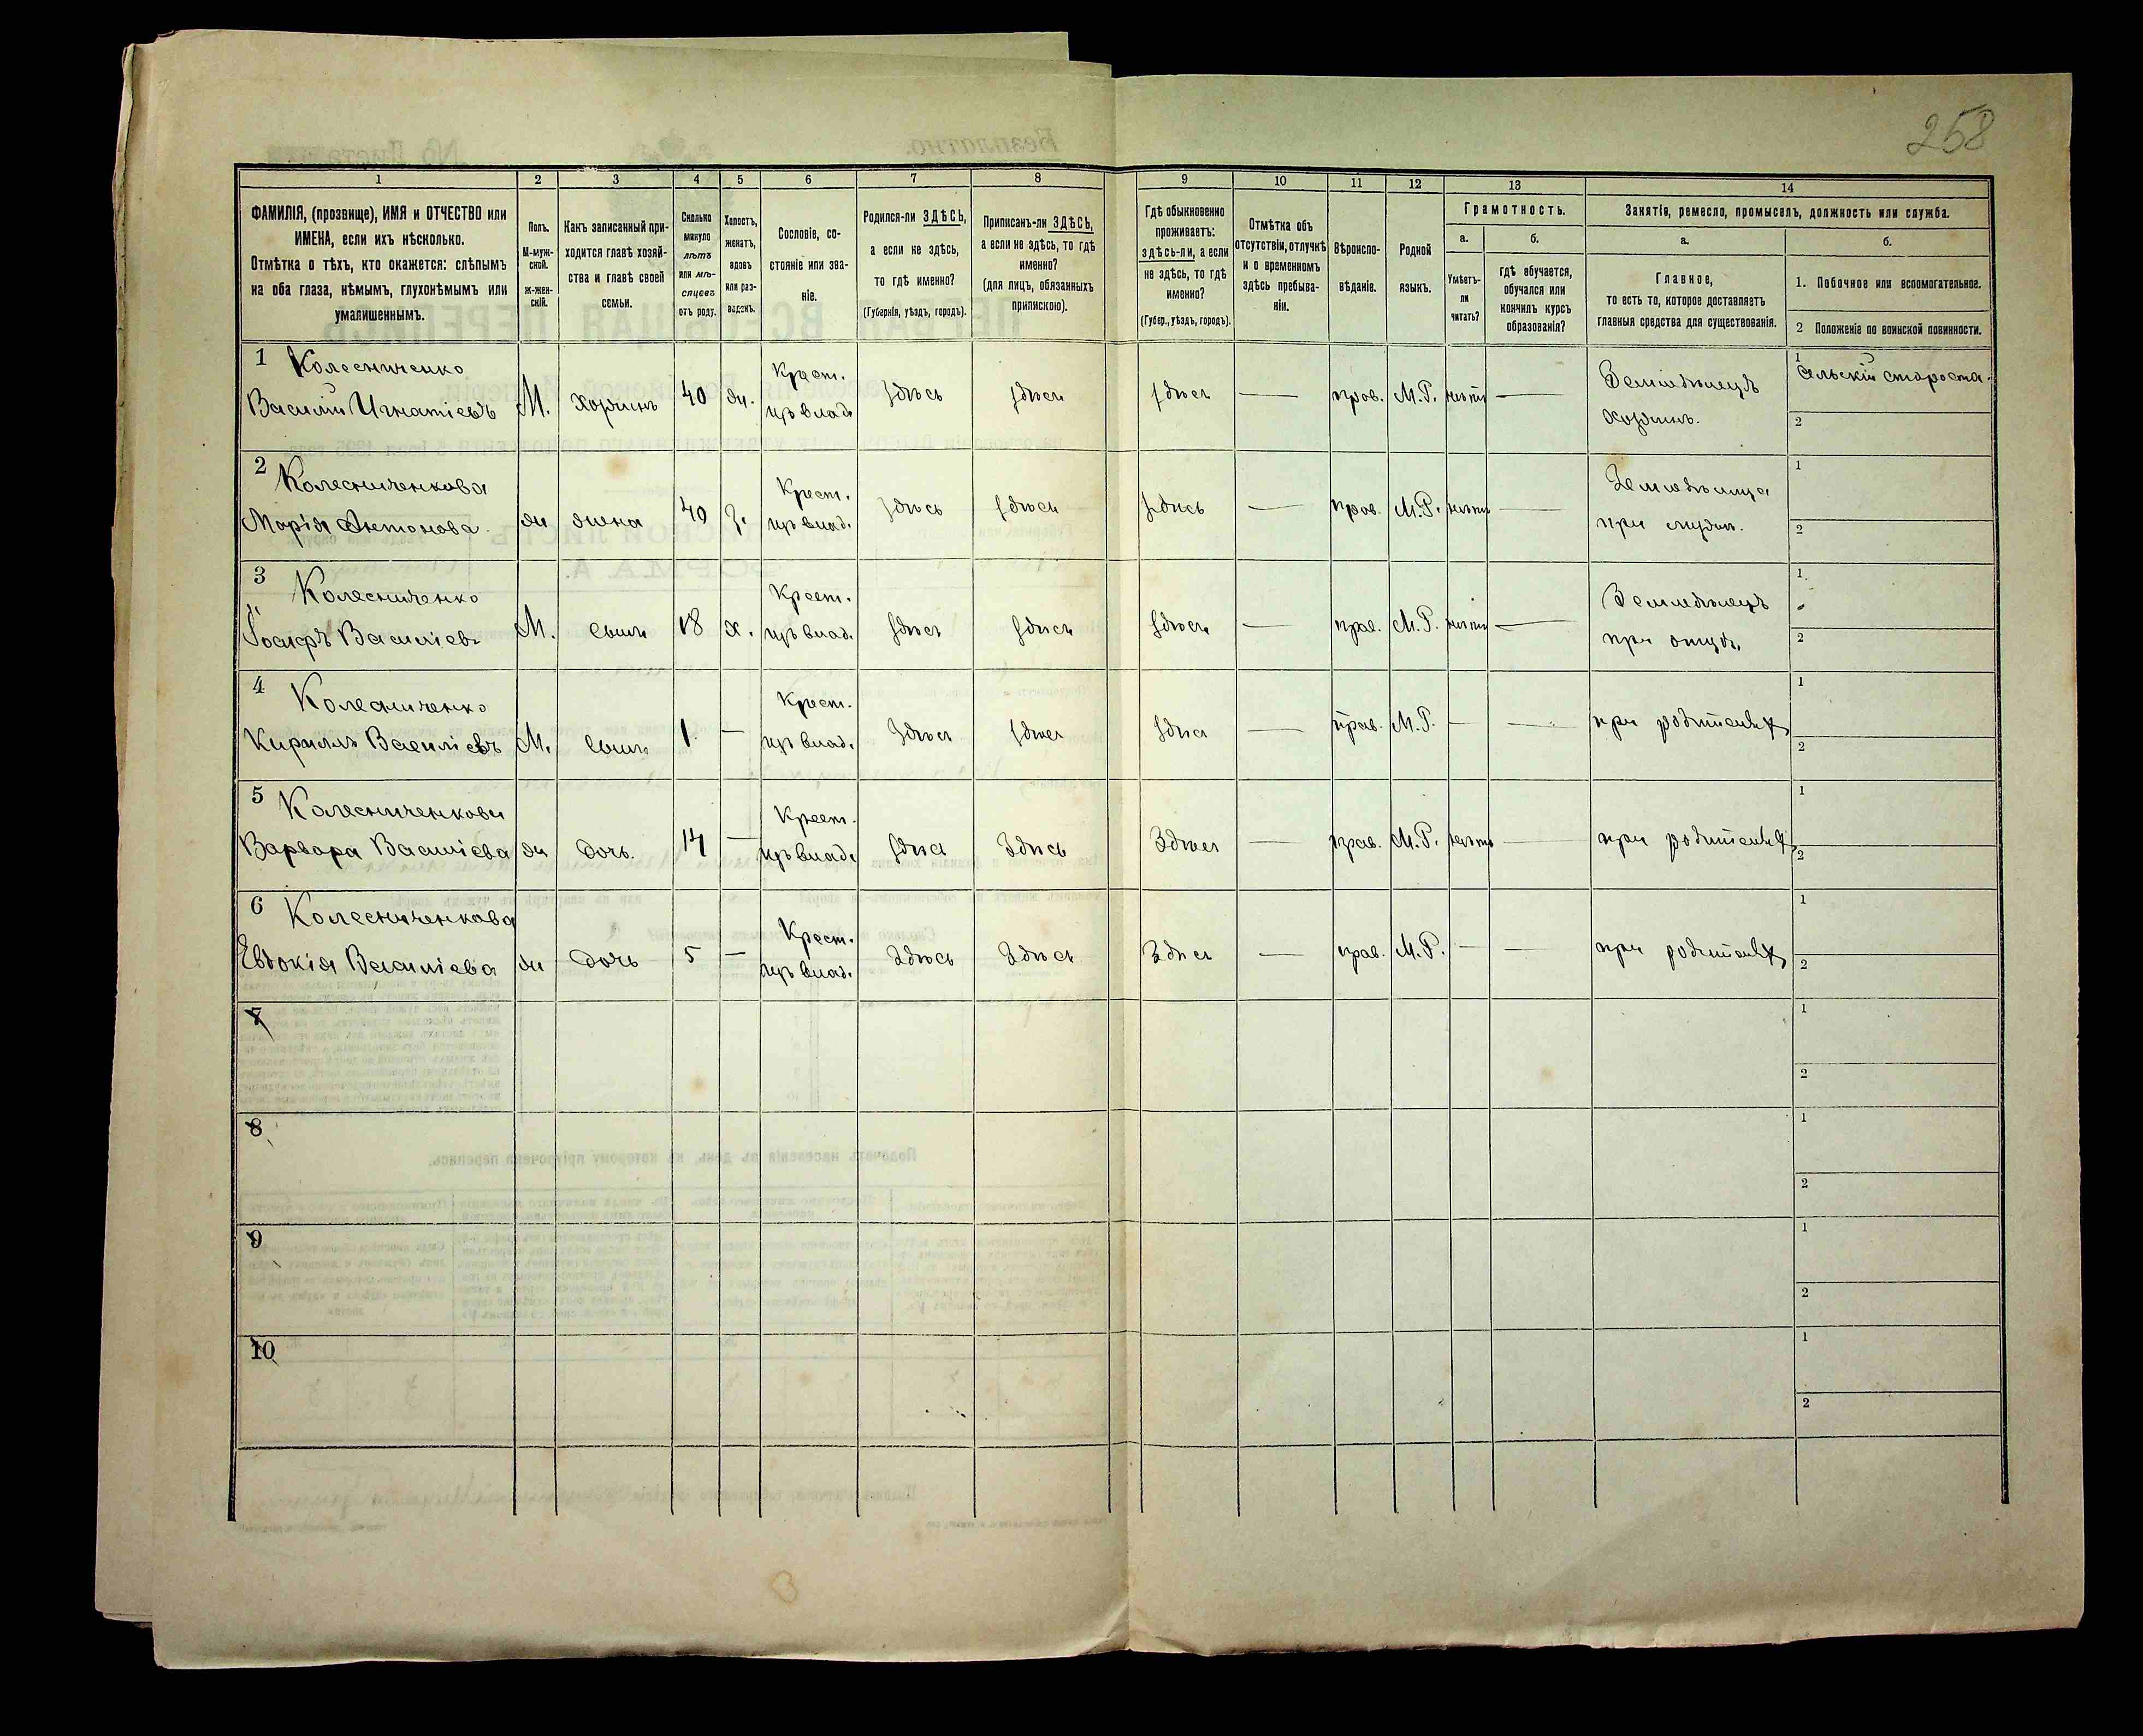 258
1 2 3 4 5 6 7 8 9 10 11 12 13 14
ФАМИЛІЯ, (прозвище), ИМЯ и ОТЧЕСТВО или
ИМЕНА, если ихъ нѣсколько.
Отмѣтка о тѣхъ, кто окажется: слѣпымъ
на оба глаза, нѣмымъ, глухонѣмымъ или
умалишеннымъ.
Полъ.
М-муж-
ской.
ж-жен-
скій.
Какъ записанный при-
ходится главѣ хозяй-
ства и главѣ своей
семьи.
Сколько
минуло
лѣтъ
или мѣ-
сяцевъ
отъ роду.
Холостъ,
женатъ,
вдовъ
или раз-
веденъ.
Сословіе, со-
стояніе или зва-
ніе.
Родился-ли ЗДѢСЬ,
а если не здѣсь,
то гдѣ именно?
(Губернія, уѣздъ, городъ).
Приписанъ-ли ЗДѢСЬ,
а если не здѣсь, то гдѣ
именно?
(для лицъ, обязанныхъ
припискою).
Гдѣ обыкновенно
проживаетъ:
здѣсь-ли, а если
не здѣсь, то гдѣ
именно?
(Губер., уѣздъ, городъ).
Отмѣтка объ
отсутствіи, отлучкѣ
и о временномъ
здѣсь пребыва-
ніи.
Вѣроиспо-
вѣданіе.
Родной
языкъ.
Грамотность.
а. б.
Умѣетъ-
ли
читать?
гдѣ обучается,
обучался или
кончилъ курсъ
образованія?
Занятіе, ремесло, промыселъ, должность или служба.
а. б.
Главное,
то есть то, которое доставляетъ
главныя средства для существованія.
1. Побочное или вспомогательное.
2 Положеніе по воинской повинности.
1 Колесниченко Крест. 1 Сельскій староста.
Василій Игнатіевъ М. хозяинъ 40 ж. изъ влад. здѣсь здѣсь здѣсь — прав. М.Р. нѣтъ — Земледѣлецъ
хозяинъ. 2
2 Колесниченкова Крест. Земледѣлица 1
Марія Антонова ж жена 40 з. изъ влад. здѣсь здѣсь здѣсь — прав. М.Р. нѣтъ — при мужѣ. 2
3 Колесниченко Крест. Земледѣлецъ 1
Іоасафъ Василіевъ М. сынъ 18 х. изъ влад. здѣсь здѣсь здѣсь — прав. М.Р. нѣтъ — при отцѣ. 2
4 Колесниченко Крест. 1
Кириллъ Василіевъ М. сынъ 1 — изъ влад. здѣсь здѣсь здѣсь — прав. М.Р. — — при родителяхъ 2
5 Колесниченкова Крест. 1
Варвара Василіева ж дочь 14 — изъ влад. здѣсь Здѣсь Здѣсь — прав. М.Р. нѣтъ — при родителяхъ 2
6 Колесниченкова Крест. 1
Евдокія Василіева ж дочь 5 — изъ влад. Здѣсь Здѣсь Здѣсь — прав. М.Р. — — при родителяхъ 2
7 1
2
8 1
2
9 1
2
10 1
2